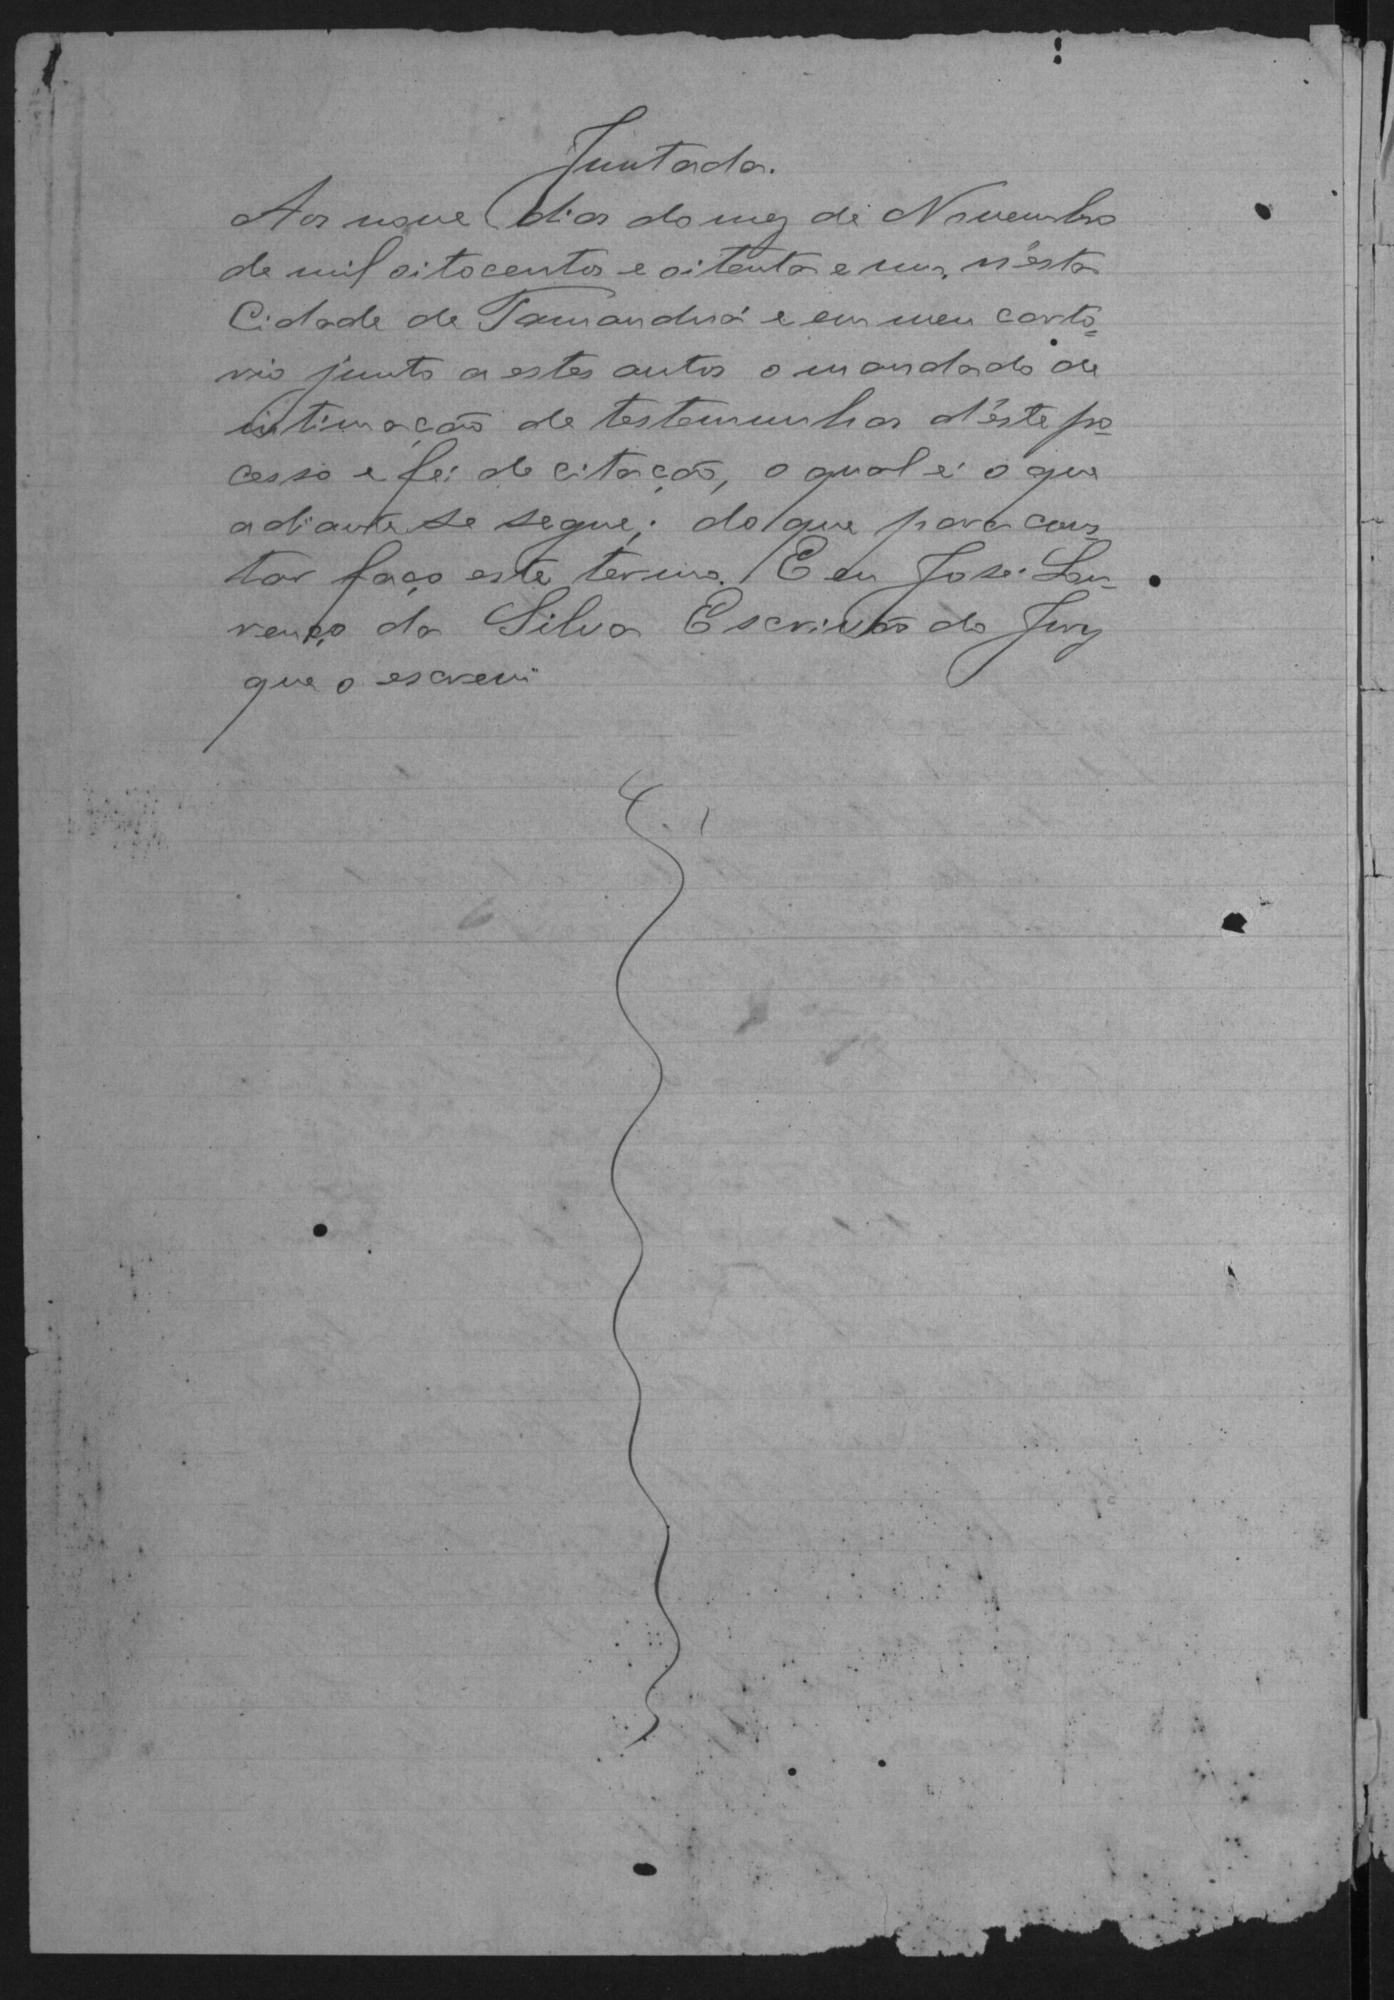 Juntada.
Aos nove dias do mez de Novembro
de mil oitocentos e oitenta e um, n'esta
Cidade de Tamanduá e em meu carto=
rio junto a estes autos o mandado de
intimação de testemunhas d'éste pro
cesso e fé de citação, o qual é o que
adiante se segue; do que para cons
tar faço este termo. E eu José Lou
renço da Silva Escrivão do Jury
que o escrevi